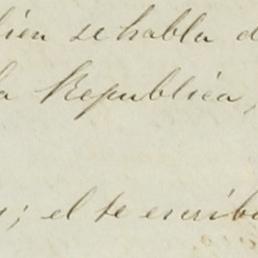 bien se habla d
la Republica,
; el te escriba